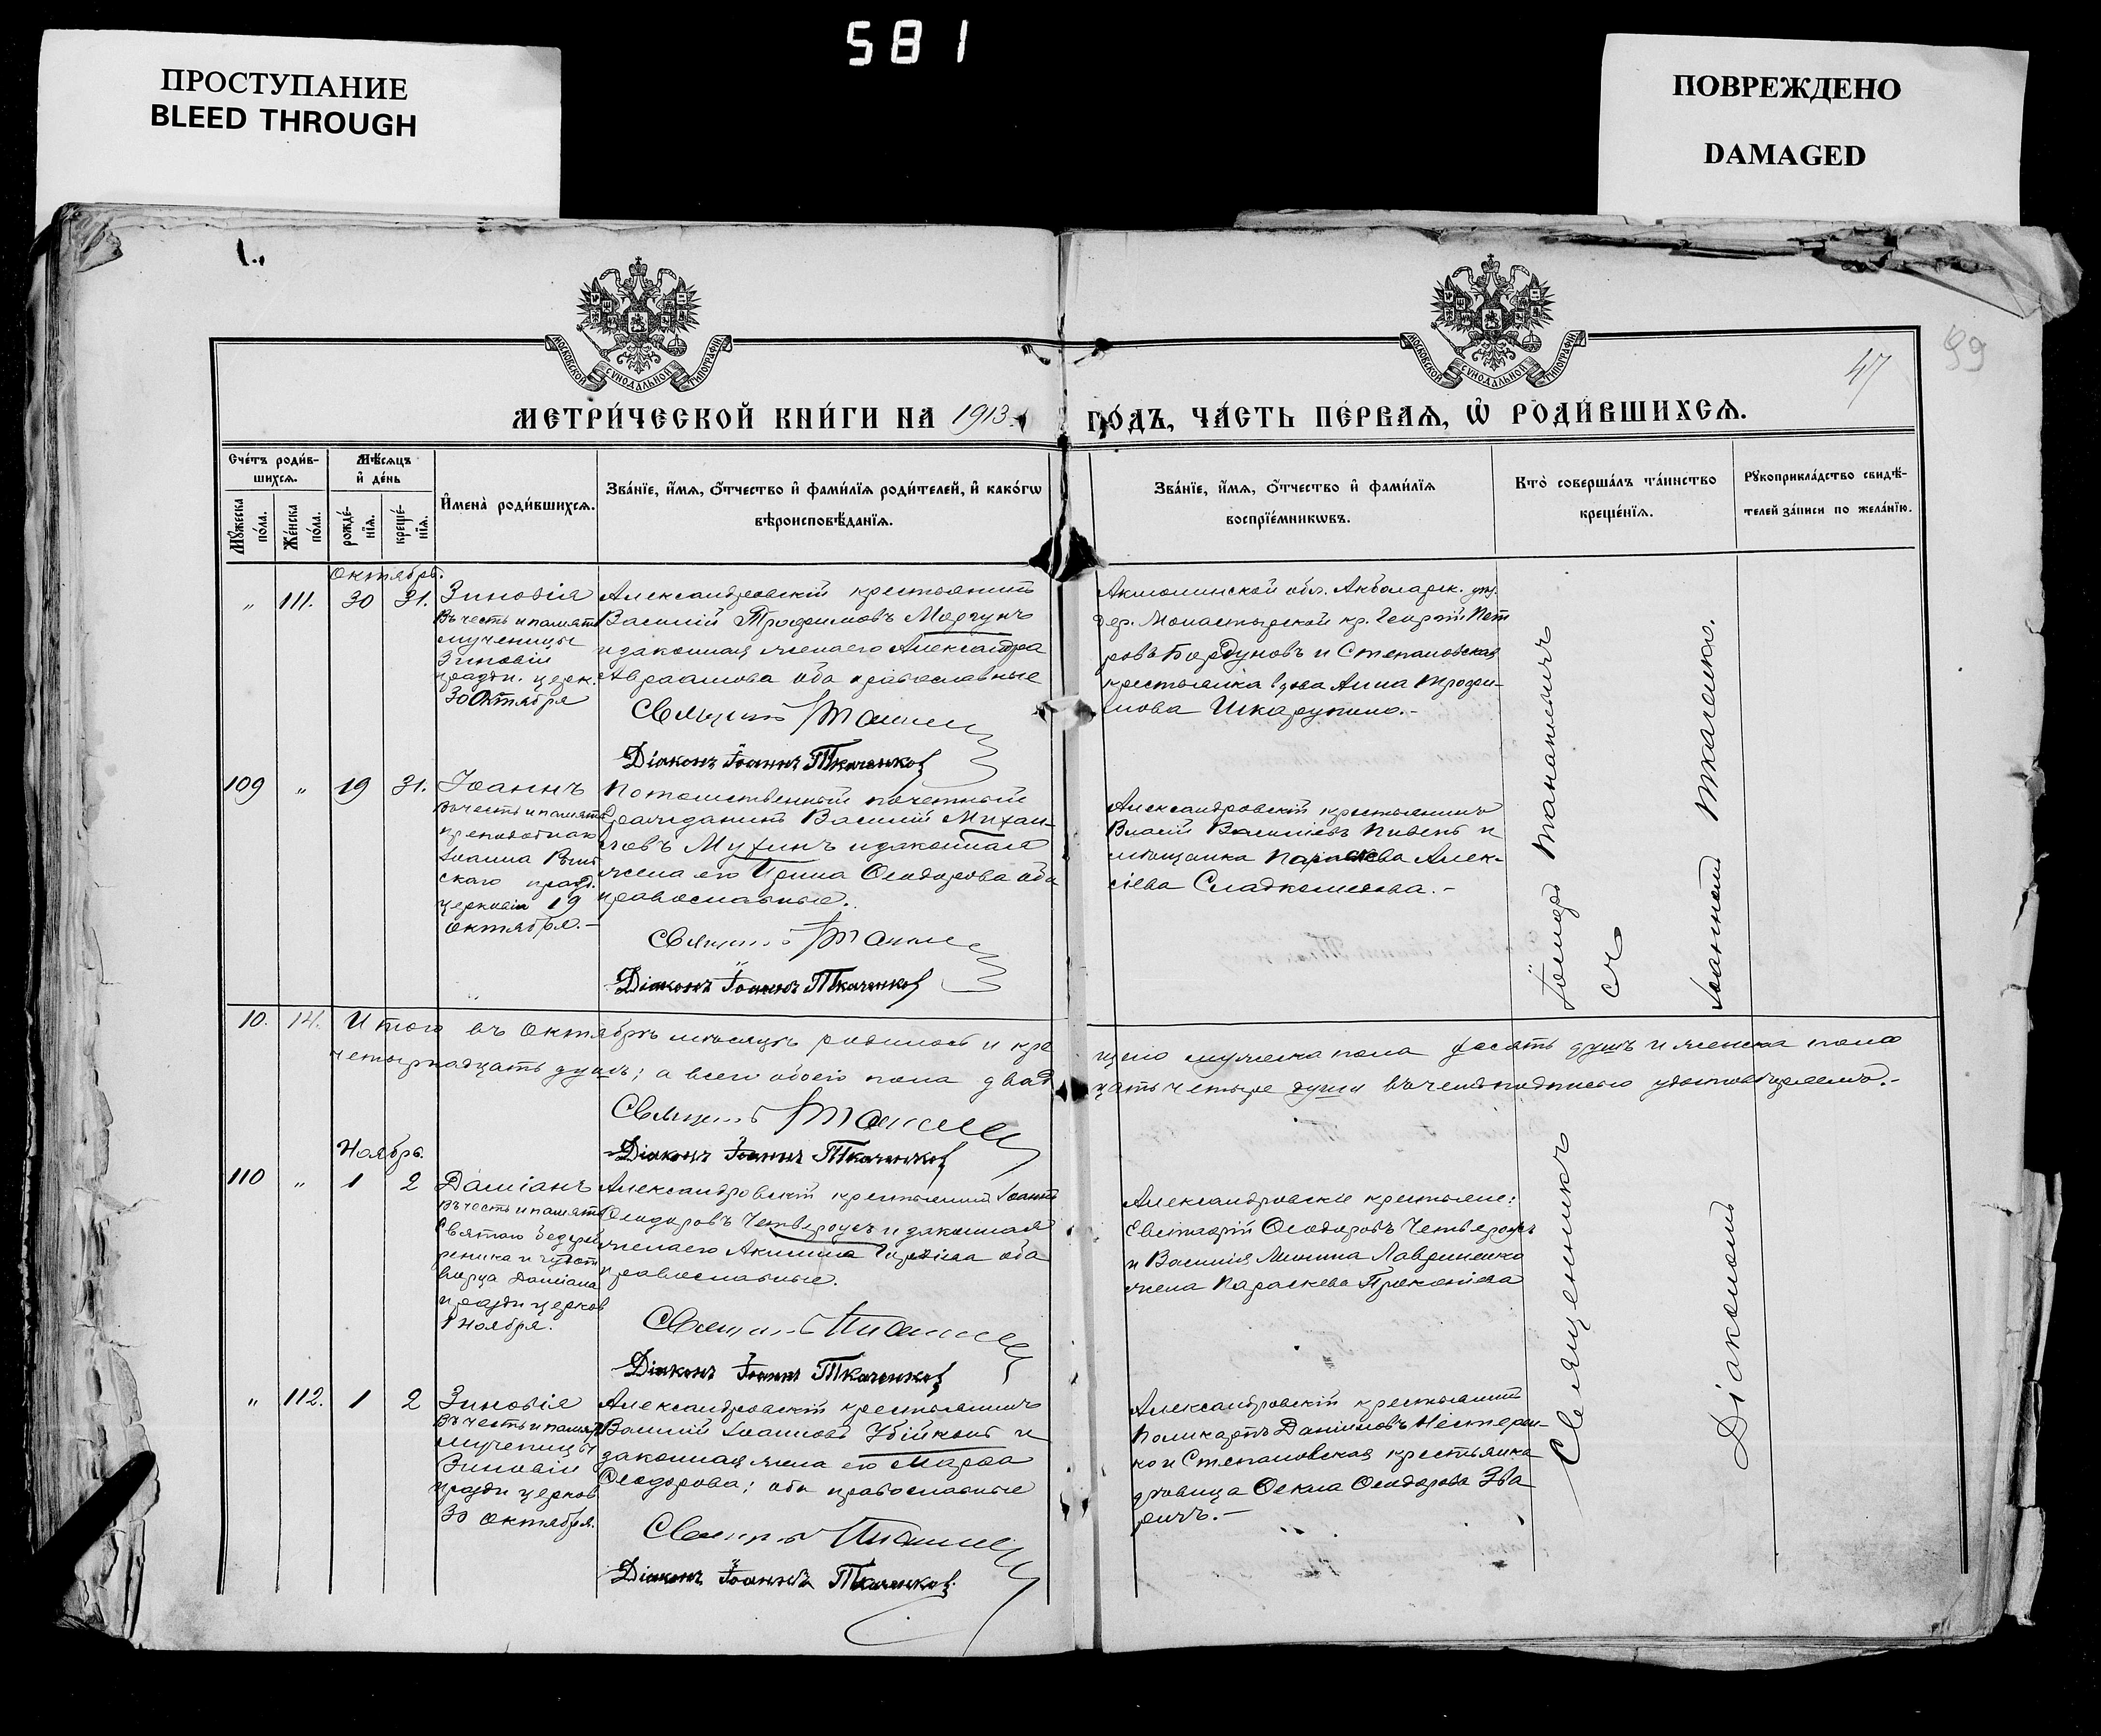 581
ПРОСТУПАНИЕ
BLEED THROUGH
ПОВРЕЖДЕНО
DAMAGED
МОСКОВСКОЙ СѴНОДАЛЬНОЙ ТИПОГРАФІИ
МОСКОВСКОЙ СѴНОДАЛЬНОЙ ТИПОГРАФІИ
47
99
МЕТРИ́ЧЕСКОЙ КНИ́ГИ НА 1913 ГО́ДЪ, ЧА́СТЬ ПЕ́РВАѦ, Ѡ҆ РОДИ́ВШИХСѦ.
Сче́тъ роди́в-
шихсѧ.
Мꙋ́жеска по́ла.
Же́нска по́ла.
Мѣ́сѧцъ
и҆ де́нь
рожде́-
нїѧ.
креще́-
нїѧ.
И҆мена̀ роди́вшихсѧ.
Зва́нїе, и҆́мѧ, ѻ҆́тчество и҆ фами́лїѧ роди́телей, и҆ како́гѡ
вѣроисповѣ́данїѧ.
Зва́нїе, и҆́мѧ, ѻ҆́тчество и҆ фами́лїѧ
воспрїе́мникѡвъ.
Кто̀ соверша́лъ та́инство
креще́нїѧ.
Рꙋкоприкла́дство свидѣ́-
телей за́писи по жела́нїю.
Октябрь.
„ 111. 30 31. Зиновія
Въ честь и память
мученицы
Зиновіи
праздн. церк.
30 Октября
Александровскій крестьянинъ
Василій Трофимовъ Моргунъ
и законная жена его Александра
Авраамова оба православные
Діаконъ Іоаннъ Ткаченко
Акмолинской обл.
дер. Монастырской кр. Георгій Пет
ровъ Бордуновъ и Степановская
крестьянка вдова Анна Трофи-
мова
109 „ 19 31. Іоаннъ
Въ честь и память
преподобнаго
Іоанна Рыль
скаго празд.
церковію 19
октября.-
Потомственный почетный
гражданинъ Василій Михаи-
ловъ Мухинъ и законная
жена его Ирина Ѳеодорова оба
православные.
Діаконъ Іоаннъ Ткаченко
Александровскій крестьянинъ
Власій Васильевъ Пивень и
мѣщанка Параскева Алек-
сіева
10. 14. Итого въ Октябрѣ мѣсяцѣ родилось и кре
щено мужеска пола десять душъ и женска пола
четырнадцать душъ; а всего обоего пола двад
цать четыре души въ чемъ подписью удостовѣряемъ.-
Діаконъ Іоаннъ Ткаченко
Ноябрь.
110 „ 1 2 Даміанъ
Въ честь и память
Святого безсреб
реника и чудот
ворца Даміана
праздн церков
1 Ноября.
Александровскій крестьянинъ Іоаннъ
Ѳеодоровъ Четвероусъ и законная
жена его Акилина оба
православные.
Діаконъ Іоаннъ Ткаченко
Александровскіе крестьяне:
Евстафій Ѳеодоровъ Четвероусъ
и Василія Минина Лавриненко
жена Параскева Прокопіева
„ 112. 1 2 Зиновія
Въ честь и память
мученицы
Зиновіи
праздн церков
30 октября.
Александровскій крестьянинъ
Василій Іоанновъ Убійконь и
законная жена его Марѳа
Ѳеодорова; оба православные
Діаконъ Іоаннъ Ткаченко
Александровскій крестьянинъ
Поликарпъ Даніиловъ Нестерен-
ко и Степановская крестьянка
дѣвица Ѳекла Ѳеодорова Зва
ричъ.-
Священникъ
съ
Діакономъ Іоанномъ Ткаченко.